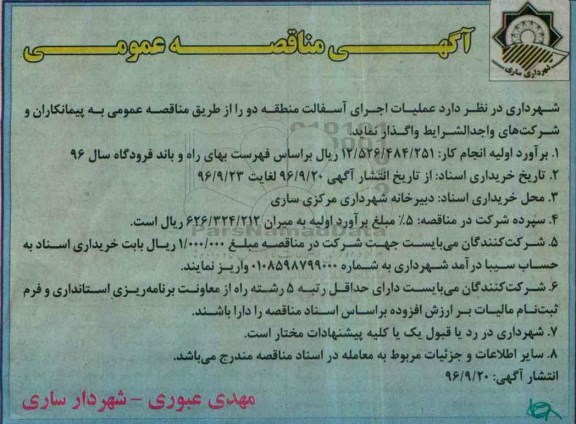 آگهی مناقصه عمومی
شهرداری ساری
شهرداری در نظر دارد عملیات اجرای آسفالت منطقه دو را از طریق مناقصه عمومی به پیمانکاران و
شرکت‌های واجدالشرایط واگذار نماید.
۱. برآورد اولیه انجام کار: ۱۲/۵۲۶/۴۸۴/۲۵۱ ریال براساس فهرست بهای راه و باند فرودگاه سال ۹۶
۲. تاریخ خریداری اسناد: از تاریخ انتشار آگهی ۹۶/۹/۲۰ لغایت ۹۶/۹/۲۳
۳. محل خریداری اسناد: دبیرخانه شهرداری مرکزی ساری
۴. سپرده شرکت در مناقصه: ۵٪ مبلغ برآورد اولیه به میزان ۶۲۶/۳۲۴/۲۱۲ ریال است.
۵. شرکت‌کنندگان می‌بایست جهت شرکت در مناقصه مبلغ ۱/۰۰۰/۰۰۰ ریال بابت خریداری اسناد به
حساب سیبا درآمد شهرداری به شماره ۰۱۰۸۵۹۸۷۹۹۰۰۰ واریز نمایند.
۶. شرکت‌کنندگان می‌بایست دارای حداقل رتبه ۵ رشته راه از معاونت برنامه‌ریزی استانداری و فرم
ثبت‌نام مالیات بر ارزش افزوده براساس اسناد مناقصه را دارا باشند.
۷. شهرداری در رد یا قبول یک یا کلیه پیشنهادات مختار است.
۸. سایر اطلاعات و جزئیات مربوط به معامله در اسناد مناقصه مندرج می‌باشد.
انتشار آگهی: ۹۶/۹/۲۰
مهدی عبوری - شهردار ساری
ParsNamadData